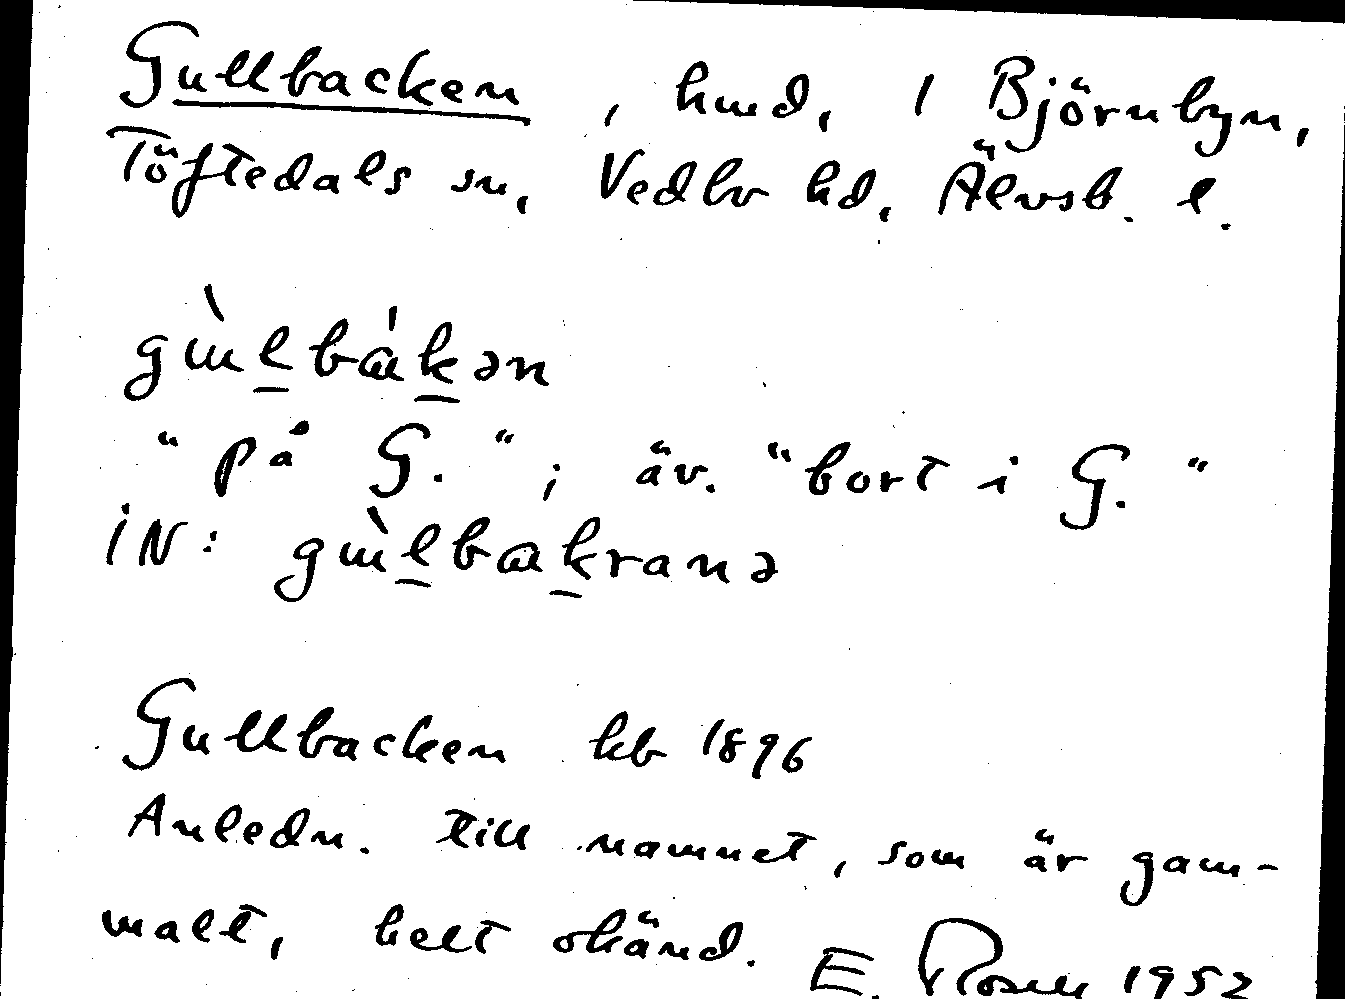 Gullbacken, hmd, 1 Björnbyn,
Töftedals sn, Vedbo hd, Älvsb. l.
gɯ̀l̲bɑ́k̲ən
"på G."; äv. "bort i G."
IN: gɯ̀l̲bɑk̲ranə
Gullbacken kb 1896
Anledn. till namnet, som är gam-
malt, helt okänd. E. Rosell 1952